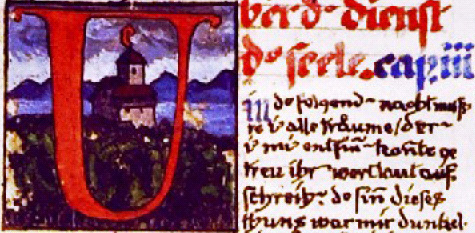 Über d‾ dienst
d‾ seele. cap. iii
in de folgend‾ nacht muß
te i alle träume/der‾
i mi entsin‾ konte ge
treu ihr‾ wortlaut auf
schreib‾. de sin‾ dieses
thuns war mir dunkel.